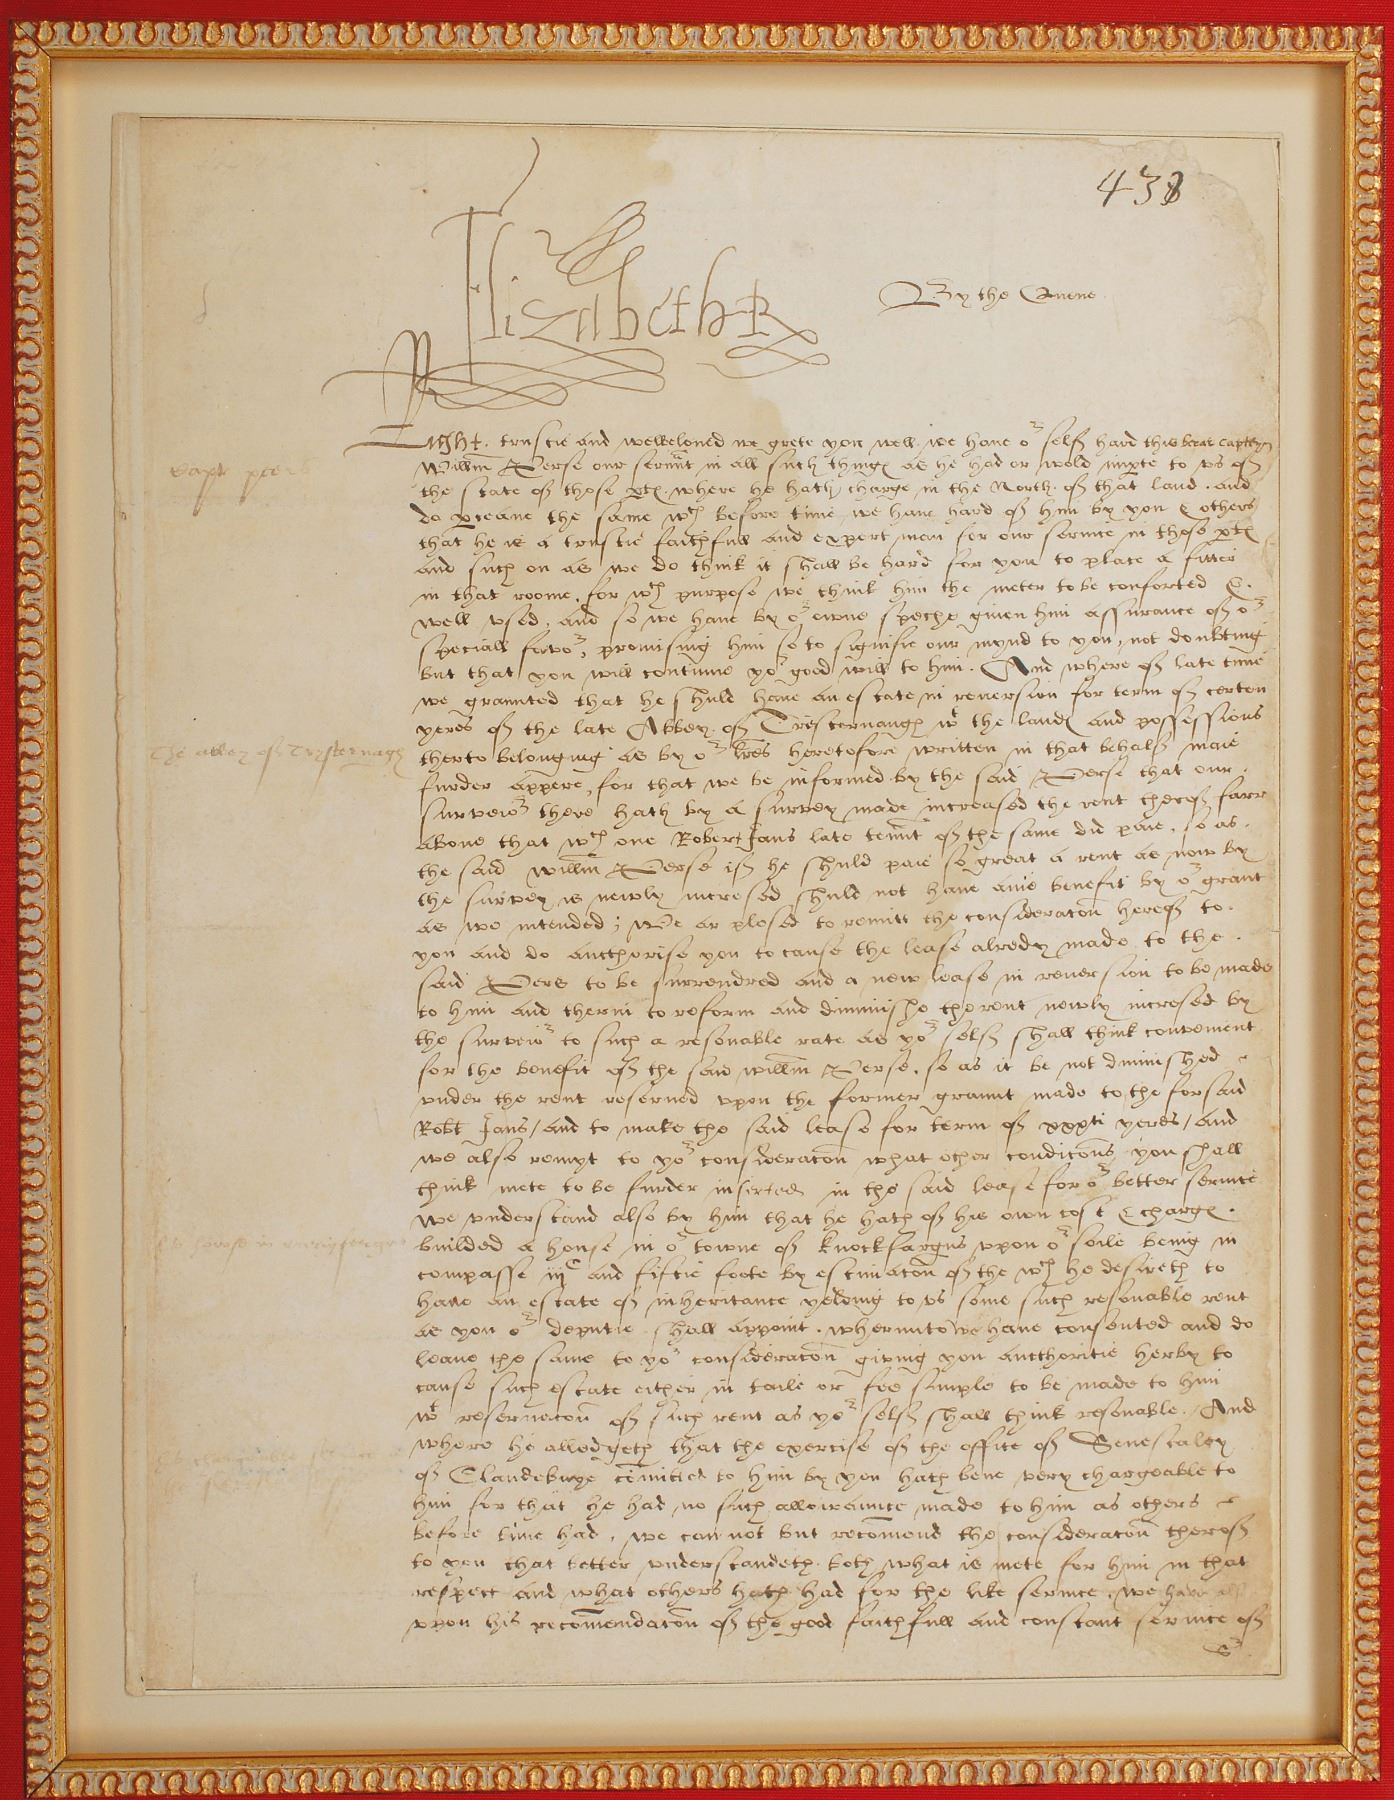 438
Elizabeth R
By the Quene
Right trustie and welbeloued we grete you well. we haue or self hard this berar Captayn
Willm Perse our servnt in all such things as he had or wold imparte to vs of
the state of those ptes where he hath charge in the North of that land. and
do the same wch before time we haue hard of him by you & others
that he is a trustie faithfull and expert man for our seruice in those ptes
and such on as we do think it shall be hard for you to place a fitter
in that roome, for wch purpose we think him the meter to be conforted &
well vsed, and so we haue by or owne speche giuen him assurance of or
speciall favor, promising him so to signifie our mynd to you, not doubting
but that you will continue yor good will to him. And where of late time
we graunted that he shuld haue an estate in reuersion for term of certen
yeres of the late Abbey of Tristernaugh wt the lands and possessions
The abbey of Trysternagh
therto belonging as by or lres heretofore written in that behalf maie
furder appere, for that we be informed by the said Perse that our
surveior there hath by a survey made increased the rent therof farr
aboue that wch one Robert Jans late tennt of the same did paie, so as
the said Willm Perse if he shuld paie so great a rent as now by
the survey is newly incresed shuld not haue anie benefit by or grant
as we intended; We ar plesed to remitt the consideracon herof to
you and do aucthorise you to cause the lease alredy made to the
said Pers to be surrendred and a new lease in reuersion to be made
to him and therin to reform and diminishe the rent newly incresed by
the surveior to such a resonable rate as yor self shall think conuenient
for the benefit of the said willm Perse, so as it be not diminished
vnder the rent reserued vpon the former graunt made to the forsaid
Robt Jans / and to make the said lease for term of xxxti yeres / and
we also remyt to yor consideracon what other condicons you shall
think mete to be furder inserted in the said lease for or better seruice
We vnderstand also by him that he hath of his own cost & charge
builded a house in or towne of knockfargus vpon or soile being in
compasse iijc and fiftie foote by estimacon of the wch he desireth to
haue an estate of inheritance yelding to vs some such resonable rent
as you or deputie shall appoint. wherunto we haue consented and do
leaue the same to yor consideracon giving you aucthoritie herby to
cause such estate either in taile or fee simple to be made to him
wt reseruacon of such rent as yor self shall think resonable. / And
where he alledgeth that the exercise of the office of Senescalcy
of Clandebuye comitted to him by you hath bene very chargeable to
him for that he had no such allowaunce made to him as others
before time had, we can not but recomend the consideracon therof
to you that better vnderstandeth both what is mete for him in that
respect and what others hath had for the like seruice. we haue
vpon his recomendacon of the good faithfull and constant seruice of